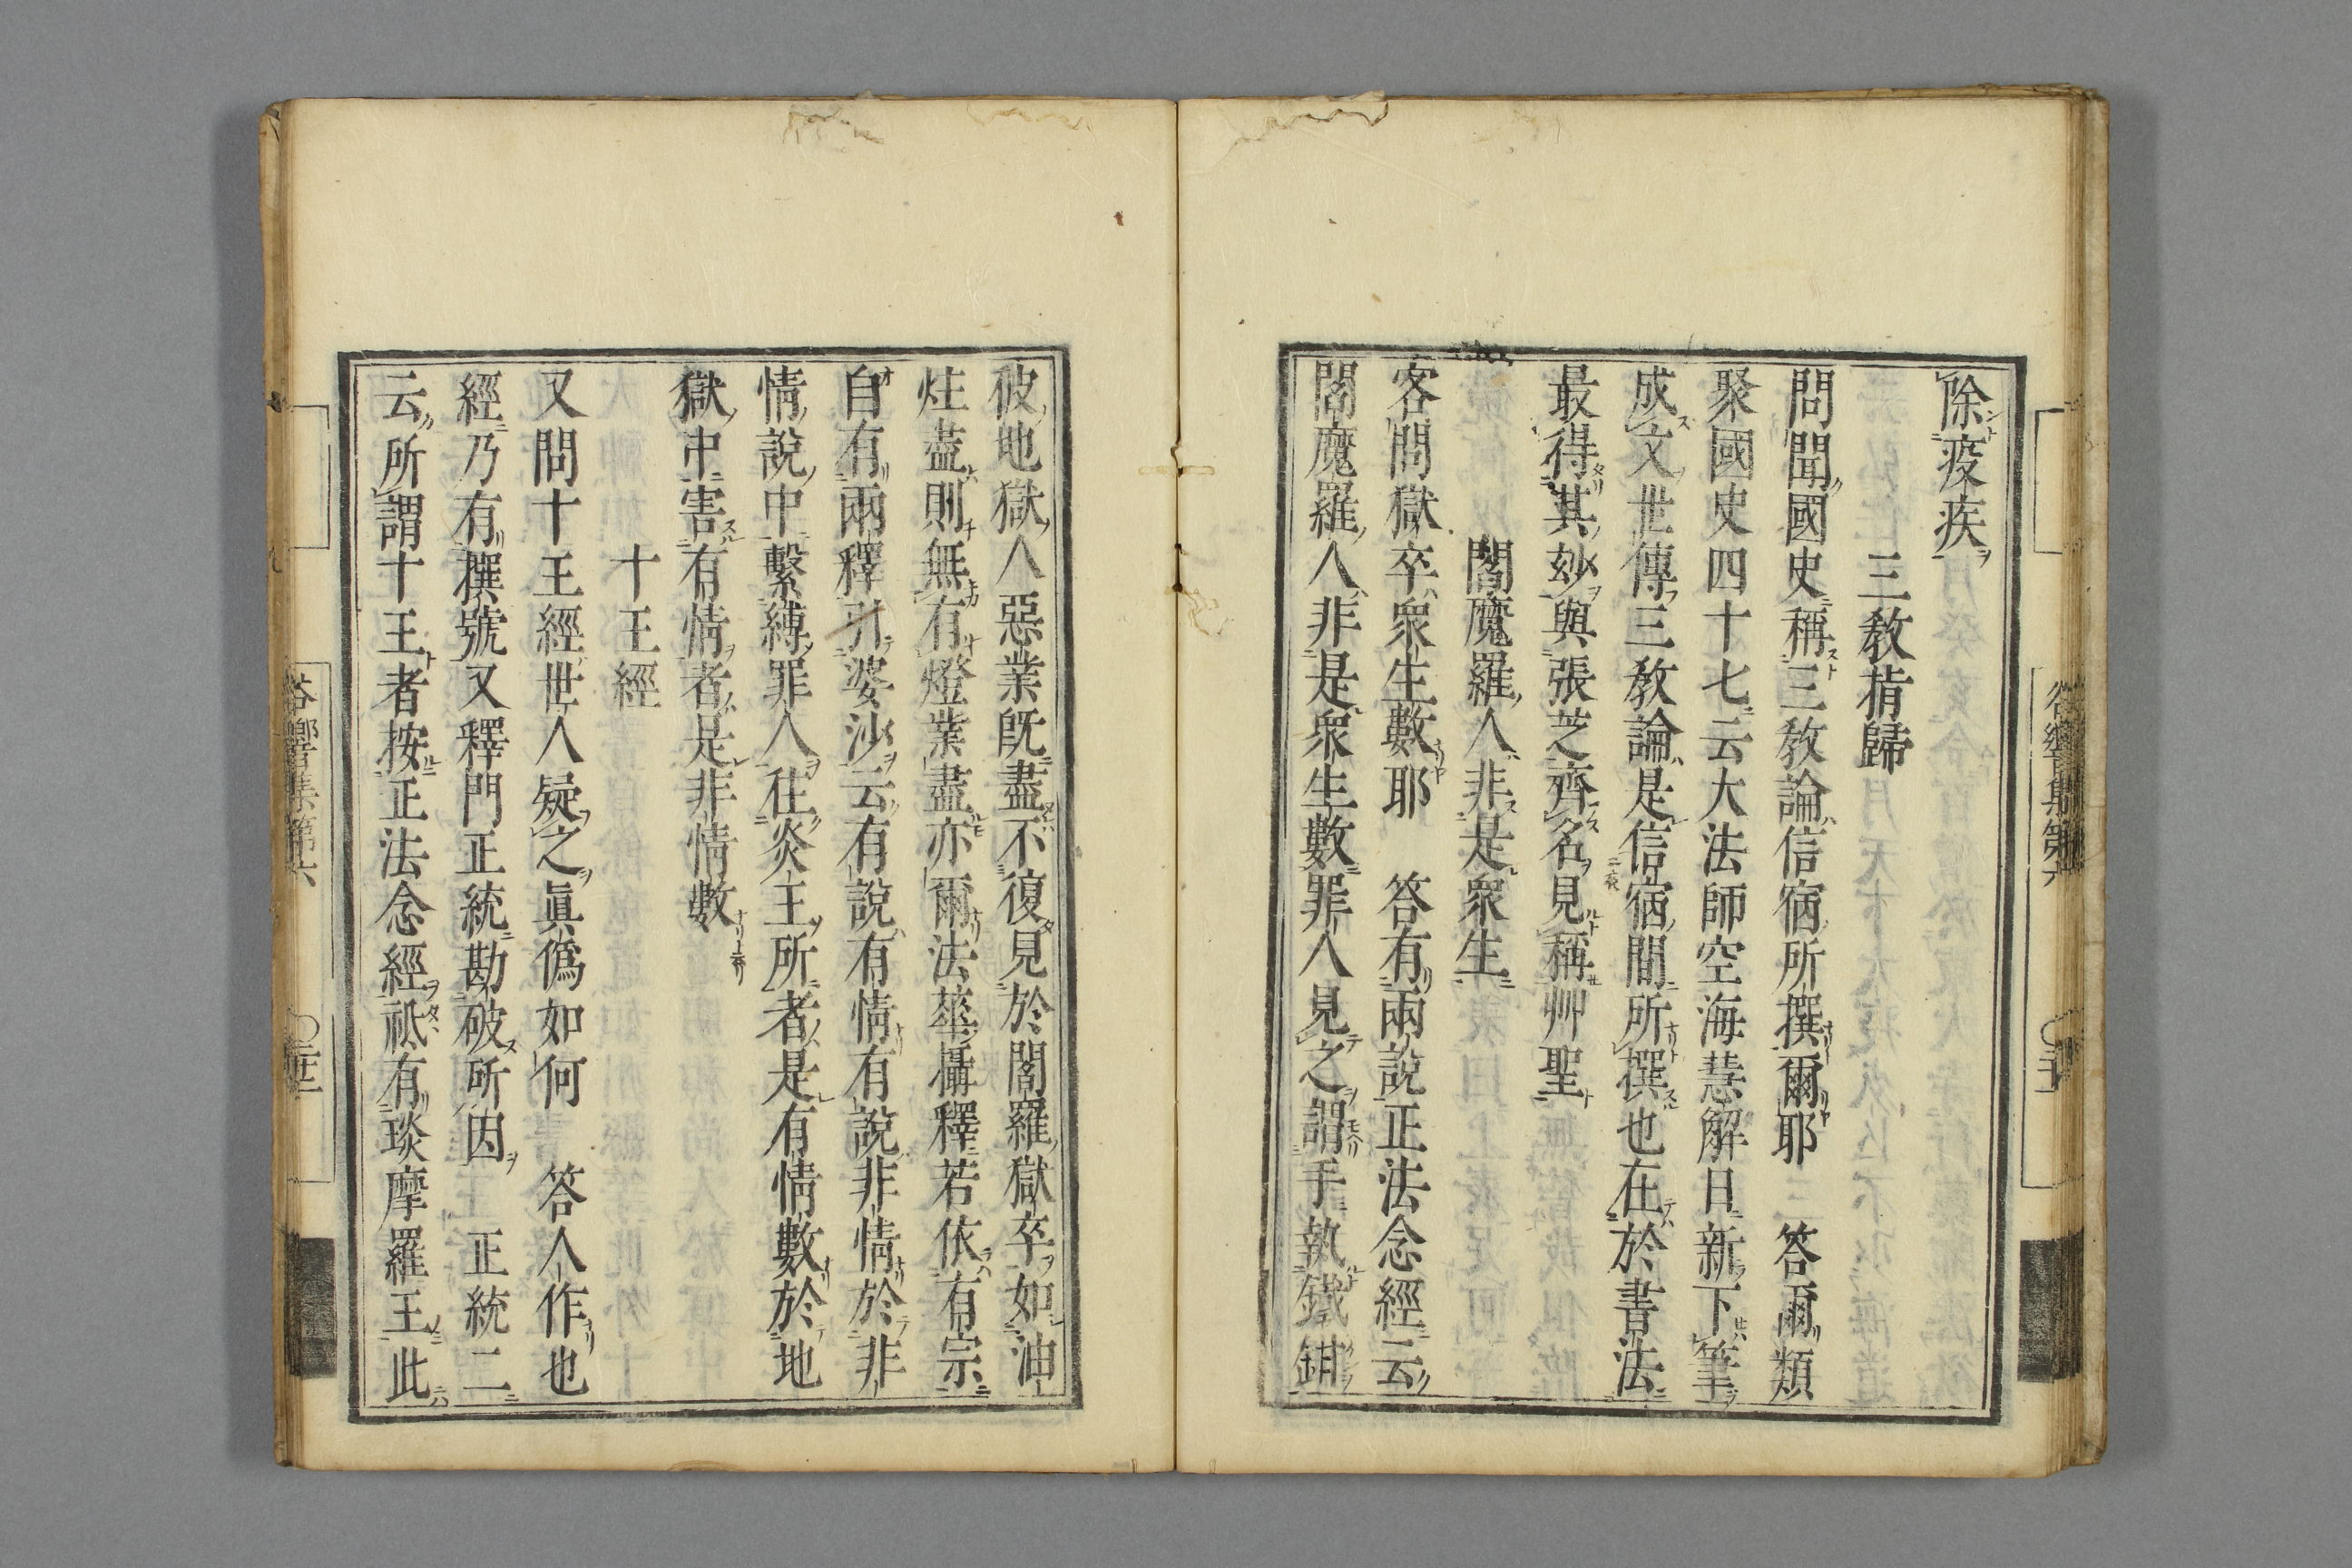 除疫疾
三教指歸
問聞國史稱三教論信宿所撰爾耶　答爾類
聚國史四十七云大法師空海慧解日新下筆
成文世傳三教論是信宿間所撰也在於書法
最得其玅與張芝齊名見稱艸聖
閻魔羅人非是衆生
客問獄卒衆生數耶　答有兩說正法念經云
閻魔羅人非是衆生數罪人見之謂手執鐵鉗
彼地獄人惡業既盡不復見於閻羅獄卒如油
炷盡則無有燈業盡亦爾法華攝釋若依有宗
自有兩釋引婆沙云有說有情有說非情於非
情說中繫縛罪人往炎王所者是有情數於地
獄中害有情者是非情數
十王經
又問十王經世人疑之眞僞如何　答人作也
經乃有撰號又釋門正統勘破所因　正統二
云所謂十王者按正法念經祗有琰摩羅王此
答響集第六